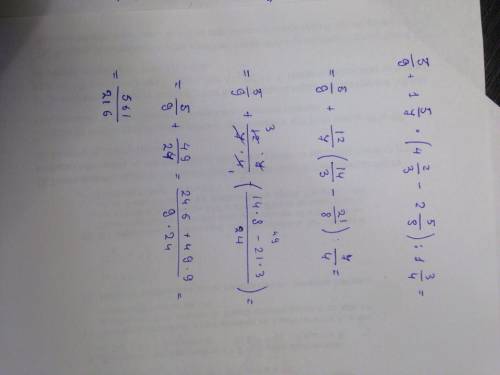 5/9 + 1 5/7 · (4 2/3 − 2 5/8) : 1 3/4 =
= 5/9 + 12/7 (14/3 − 21/8) · 7/4 =
= 5/9 + 3 12·7/7·4 1 (14·8 − 21·3/24 49) =
= 5/9 + 49/24 = 24·5 + 49·9/9·24 =
= 561/216